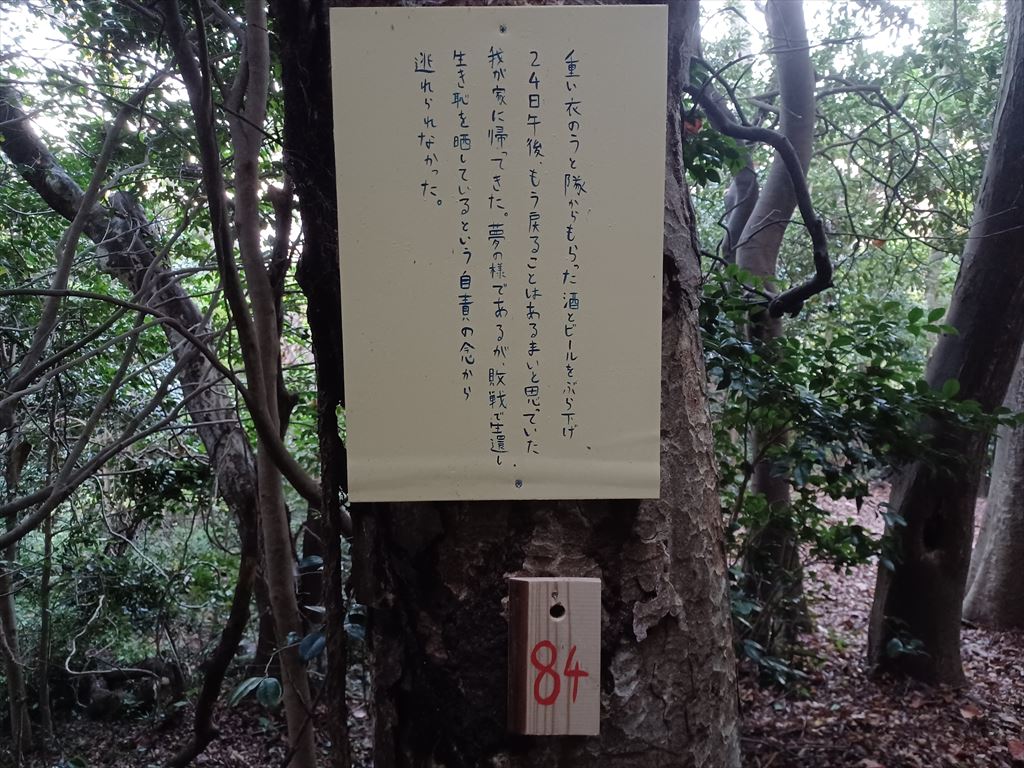 重い衣のうと隊からもらった酒とビールをぶら下げ
24日午後、もう戻ることはあるまいと思っていた
我が家に帰ってきた。夢の様であるが敗戦で生還し
生き恥を晒しているという自責の念から
逃れられなかった。
84